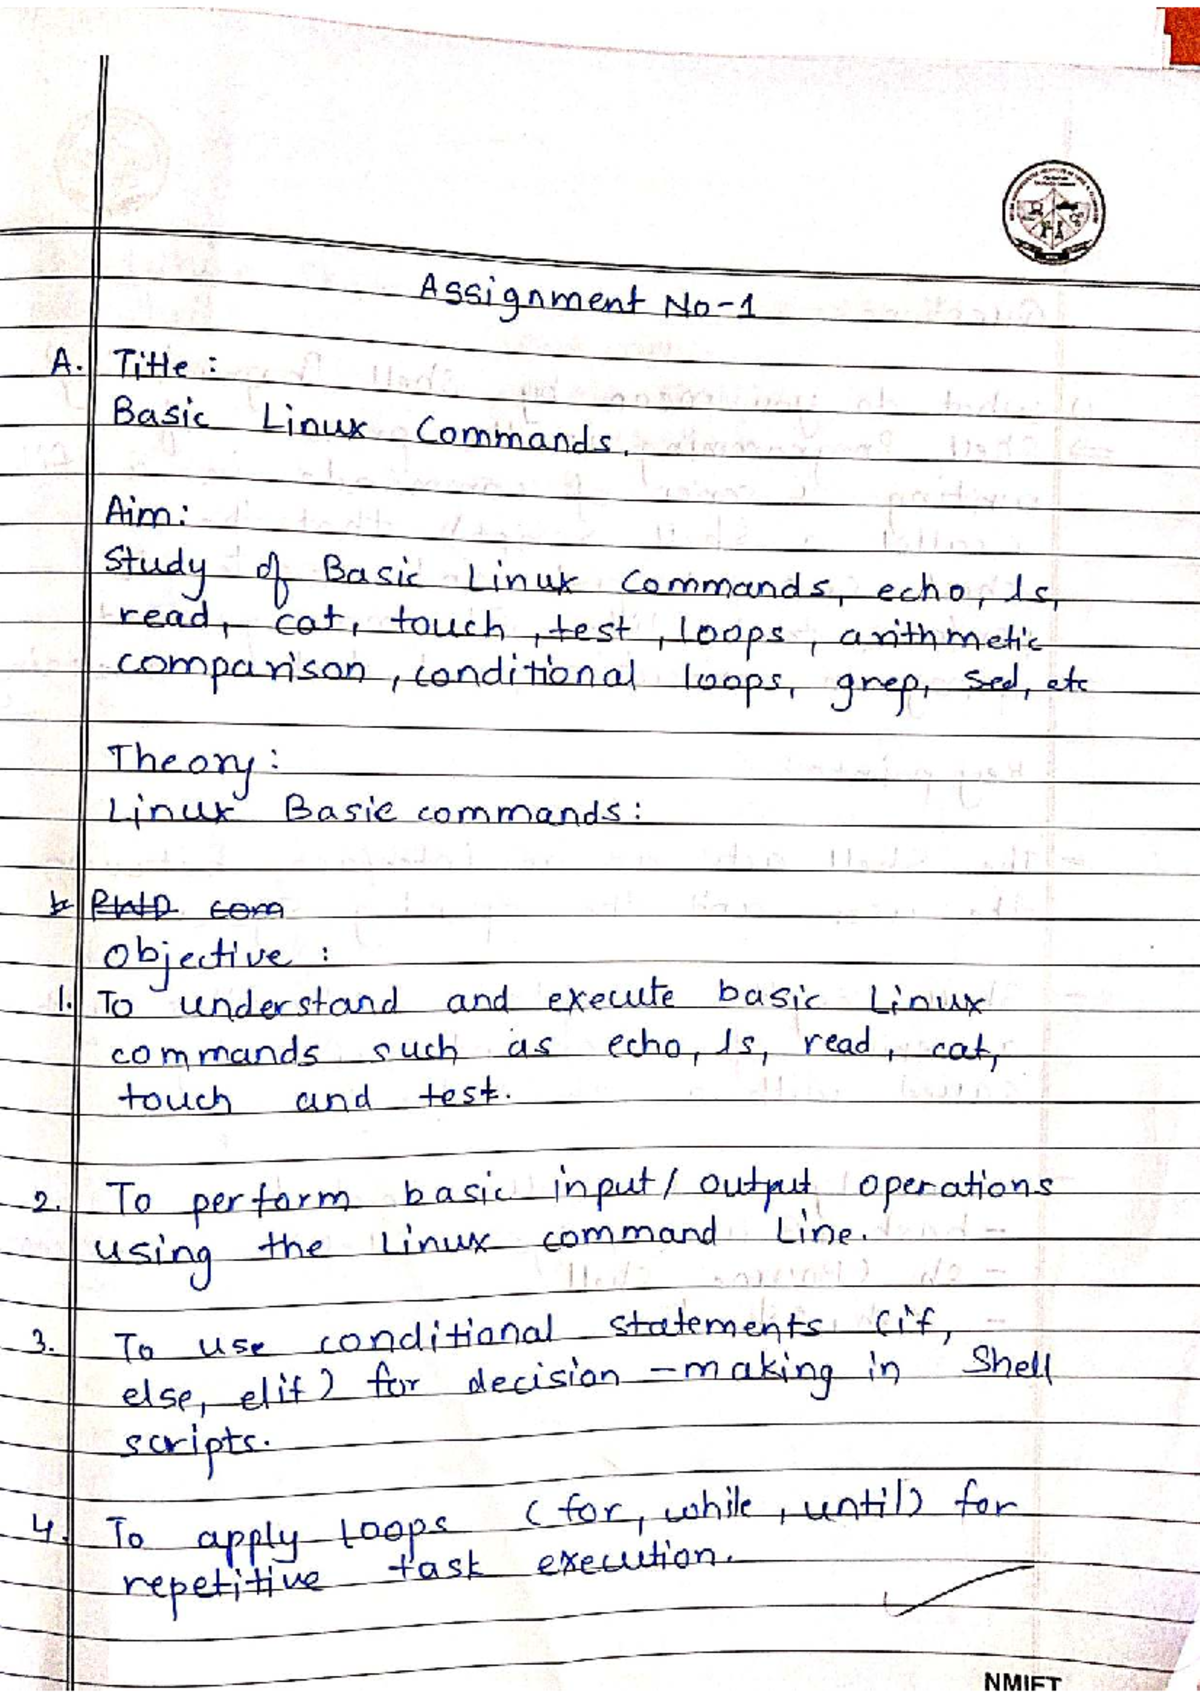 Assignment No-1
A. Title :
Basic Linux Commands.
Aim:
Study of Basic Linux Commands, echo, ls,
read, cat, touch, test, loops, arithmetic
comparison, conditional loops, grep, sed, etc
Theory:
Linux Basic commands:
PWD com
Objective :
1. To understand and execute basic Linux
commands such as echo, ls, read, cat,
touch and test.
2. To perform basic input/output operations
using the Linux command Line.
3. To use conditional statements (if,
else, elif) for decision-making in Shell
scripts.
4. To apply Loops (for, while, until) for
repetitive task execution.
NMIET